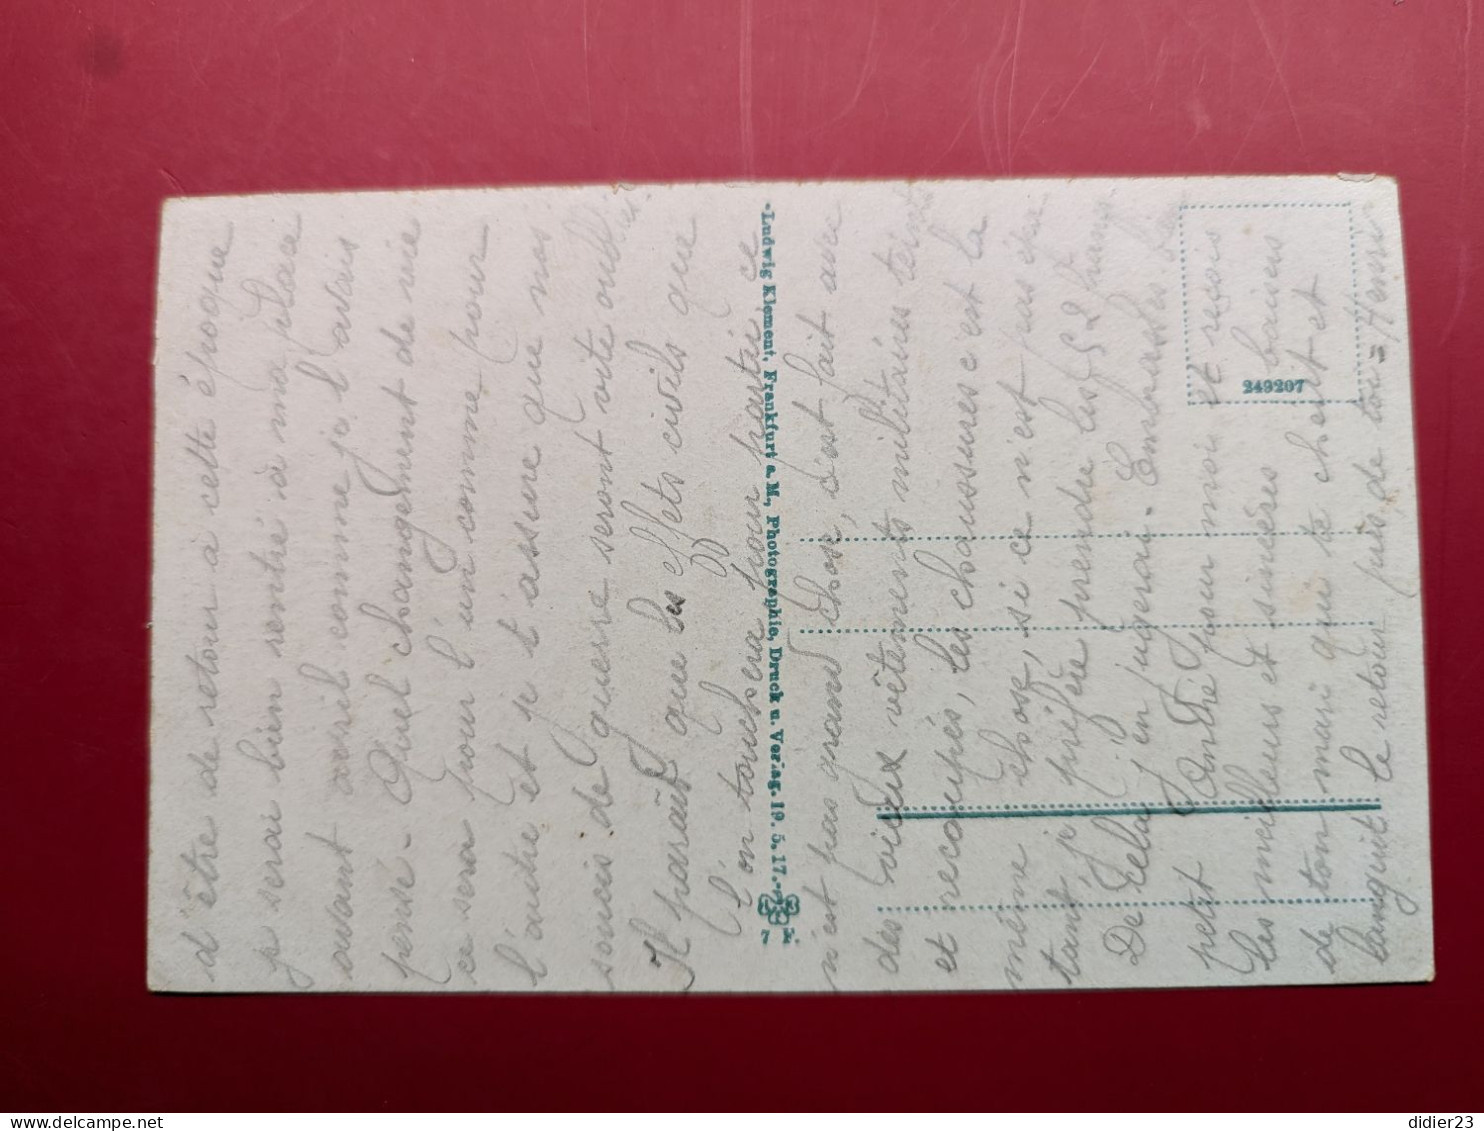 d'être de retour à cette époque
je serai bien rentré à ma place
avant avril comme je l'avais
pensé - Quel changement de vie
ce sera pour l'un comme pour
l'autre et je t'assure que nos
soucis de guerre seront vite oubliés.
Il paraît que les effets civils que
l'on touchera pour partir, ce
n'est pas grand chose, c'est fait avec
des vieux vêtements militaires teints
et recoupés, les chaussures c'est la
même chose, si ce n'est pas
tant, je préfère prendre les 52 francs
De cela j'en jugerai - Embrasse bien
petit André pour moi et reçois
les meilleurs et sincères baisers
de ton mari qui te chérit et
languit le retour près de toi =
Ludwig Klement, Frankfurt a. M., Photographie, Druck u. Verlag. 19. 5. 17.
7
249207
didier23